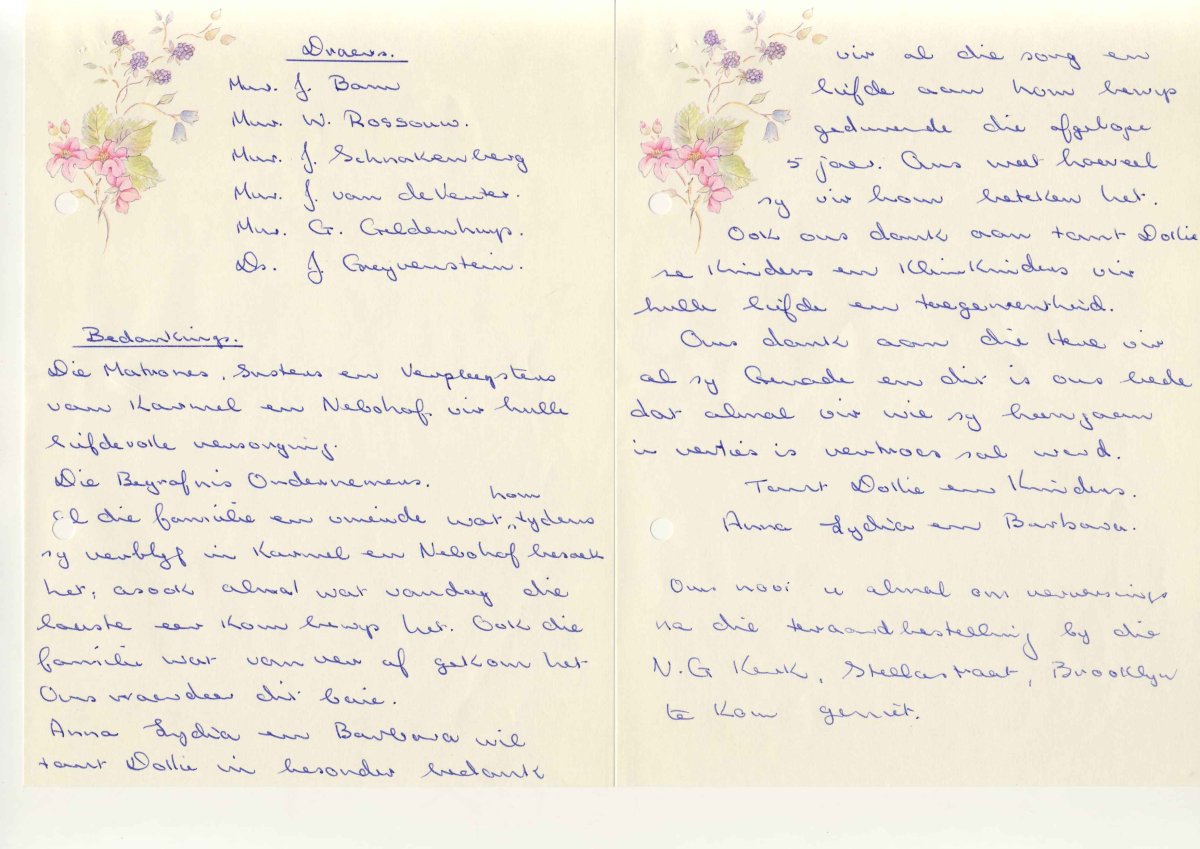 Draers.
Mnr. J. Bam
Mnr. W. Rossouw.
Mnr. J. Schnakenberg
Mnr. J. van de Venter.
Mnr. G. Geldenhuys.
Ds. J. Greyvenstein.
Bedankings.
Die Matrones, Susters en Verpleegsters
van Karmel en Nebohof. vir hulle
liefdevolle versorging.
Die Begrafnis Ondernemers.
hom
Al die familie en vriende wat "tydens
sy verblyf in Karmel en Nebohof besoek
het, asook almal wat vandag die
laaste eer kom bewys het. Ook die
familie wat van ver af gekom het
Ons waardeer dit baie.
Anna Lydia en Barbara wil
tant Dollie in besonder bedank
vir al die sorg en
liefde aan hom bewys
gedurende die afgelope
5 jaar. Ons weet hoeveel
sy vir hom beteken het.
Ook ons dank aan tant Dollie
se Kinders en Kleinkinders vir
hulle liefde en toegeneentheid.
Ons dank aan die Here vir
al sy Genade en dit is ons bede
dat almal vir wie sy heengaan
'n verlies is vertroos sal word.
Tant Dollie en Kinders.
Anna Lydia en Barbara.
Ons nooi u almal om verversings
na die teraardbestelling by die
N.G Kerk, Stellastraat, Brooklyn
te kom geniet.